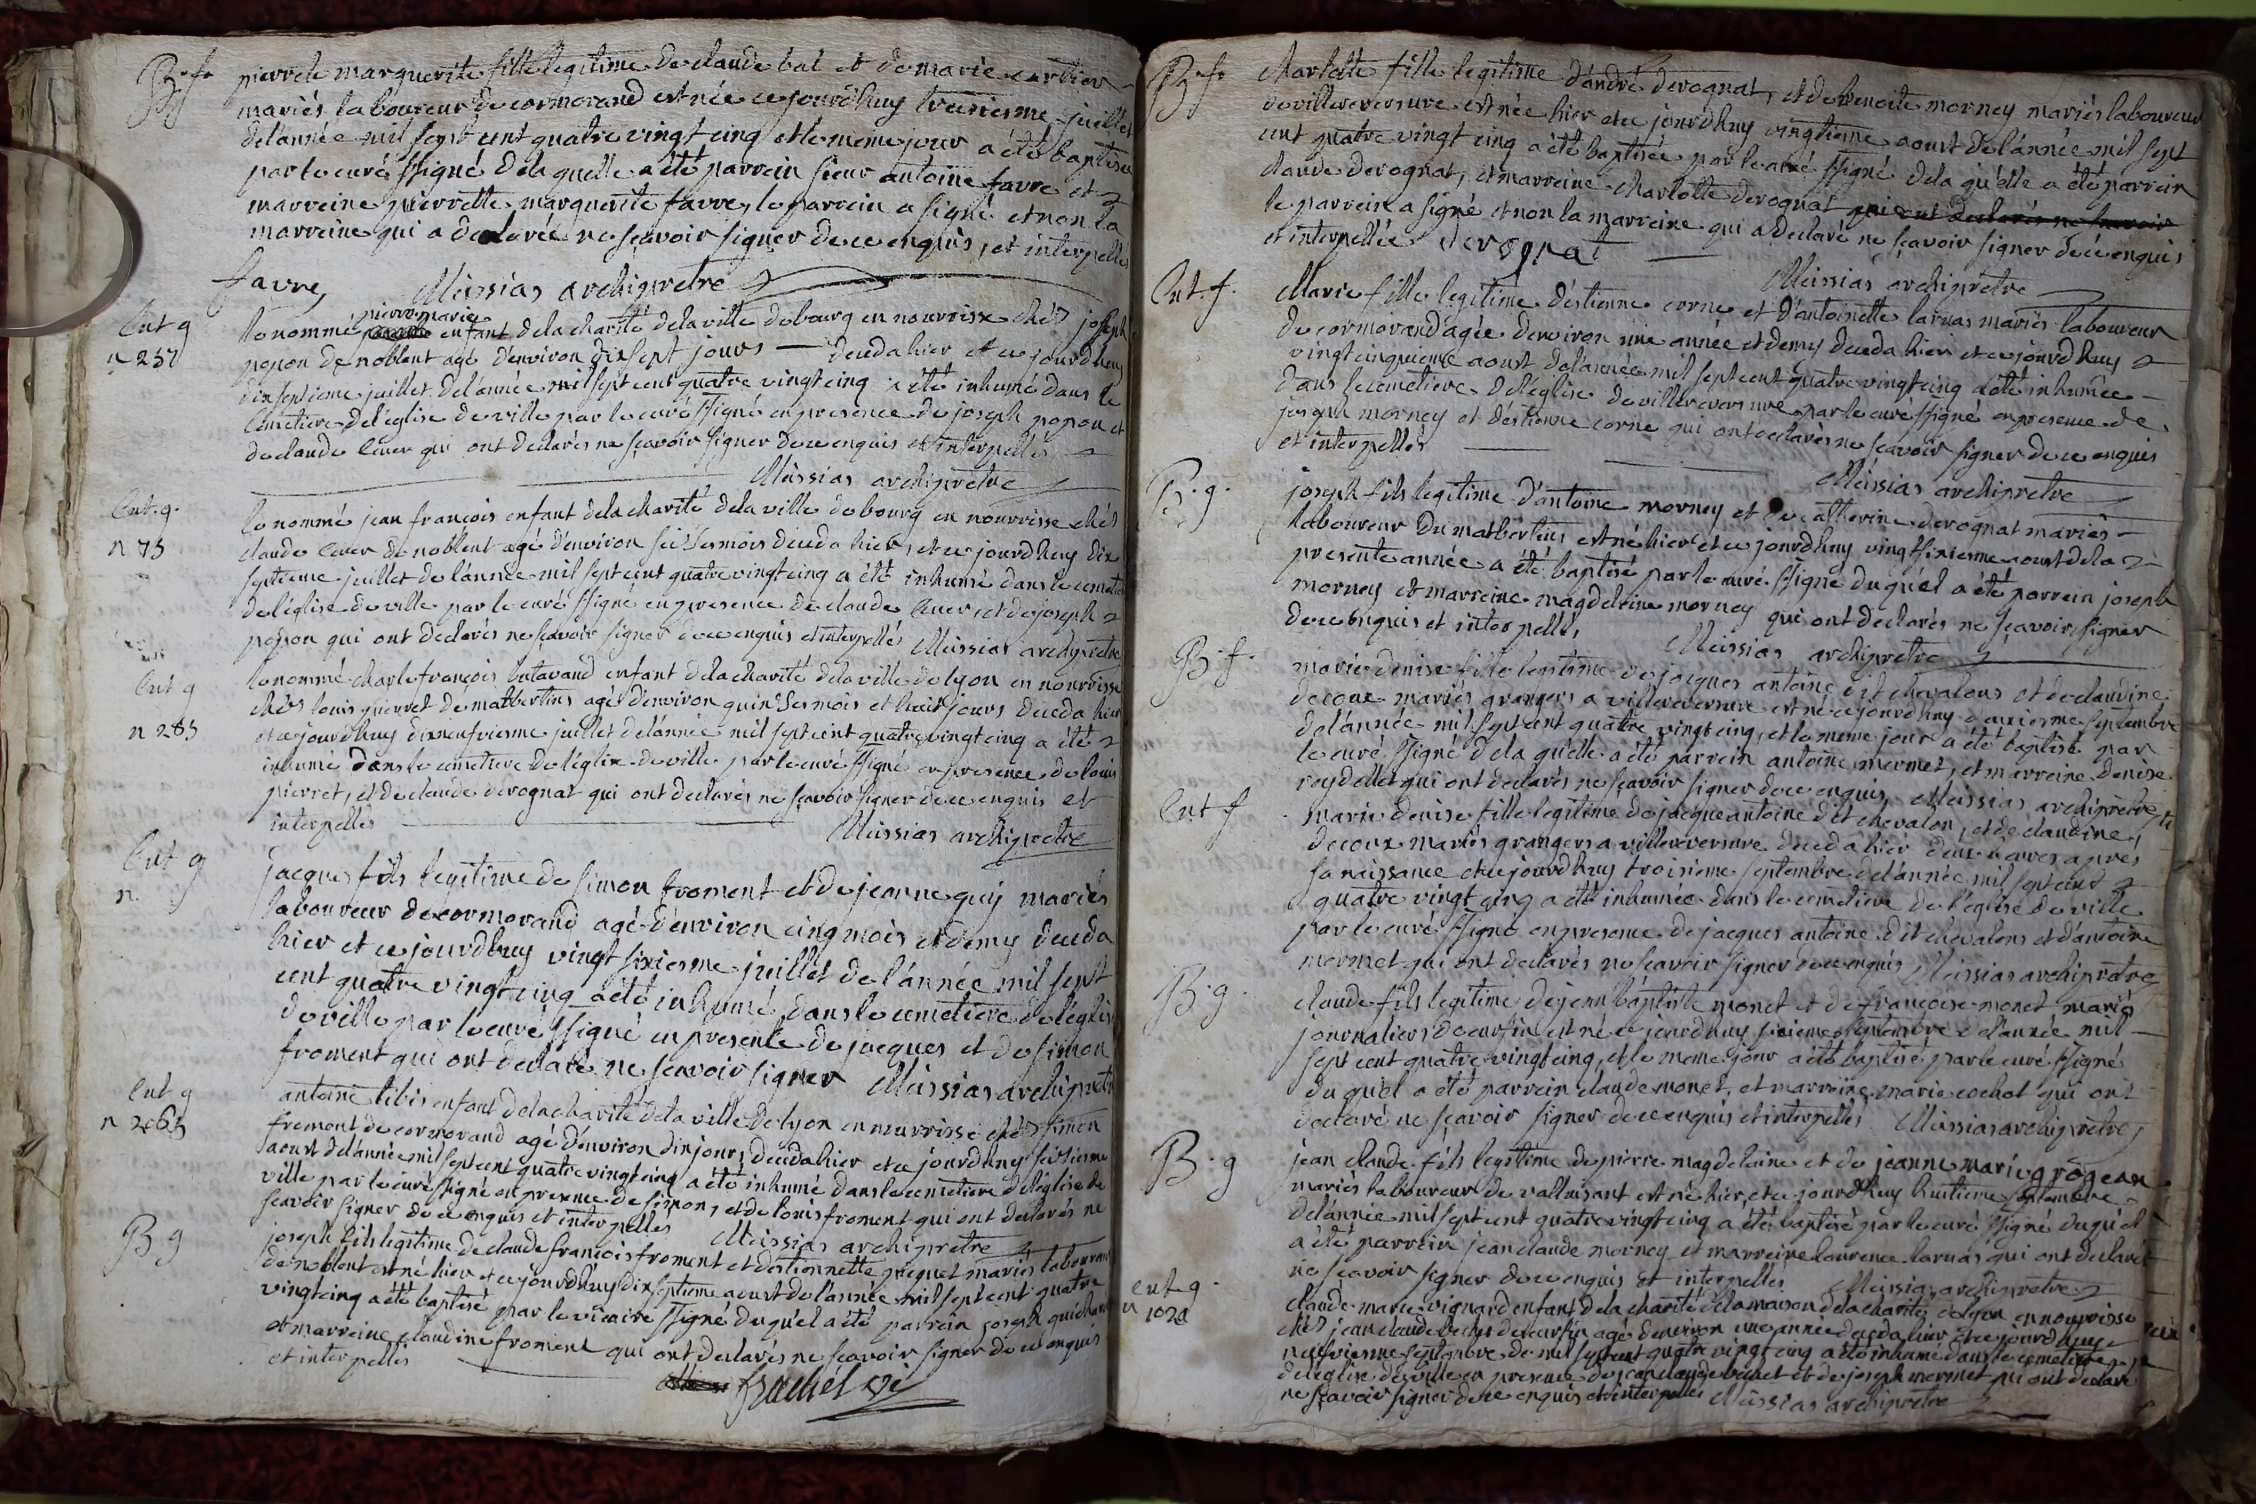 B. f. pierrete marguerite fille legitime de claude bal et de marie
mariés laboureur de cormorand est née ce jourdhuy treisiesme juillet
de l'année mil sept cent quatre vingt cinq et le meme jour a été baptisée
par le curé ssigné de la quelle a été parrein sieur antoine favre et
marreine pierrette marguerite favre, le parrein a signé et non la
marreine qui a declarée ne sçavoir signer de ce enquis, et interpellée
favre, Messias archipretre
Ent g le nommé pierre marie enfant de la charité de la ville de bourg en nourrisse chés joseph
n 257 popon de noblent agé d'environ dix sept jours deceda hier et ce jourdhuy
dix septieme juillet de l'année mil sept cent quatre vingt cinq a été inhumé dans le
cemetiere de l'eglise de ville par le curé ssigné en presence de joseph popon et
de claude qui ont declarés ne sçavoir signer de ce enquis et interpellés
Messias archipretre
Ent. g. le nommé jean françois enfant de la charité de la ville de bourg en nourrisse chés
n 75 claude de noblent agé d'environ mois deceda hier, et ce jourdhuy dix
septieme juillet de l'année mil sept cent quatre vingt cinq a été inhumé dans le
de l'église de ville par le curé ssigné en presence de claude et de joseph
popon qui ont declarés ne sçavoir signer de ce enquis et interpellés Messias archipretre
Ent g le nommé charle françois butavand enfant de la charité de la ville de lyon en nourrisse
chés louis pierret de matbertins agé d'environ quinse mois et huit jours deceda hier
n 285 et ce jourdhuy dixneufviesme juillet de l'année mil sept cent quatre vingt cinq a été
inhumé dans le cemetiere de l'église de ville par le curé ssigné en presence de louis
pierret, et de claude derognat qui ont declarés ne sçavoir signer de ce enquis et
interpellés Messias archipretre
Ent g jacques fils legitime de simon froment et de jeanne mariés
n. laboureur de cormorand agé d'environ cinq mois et demy deceda
hier et ce jourdhuy vingt sixiesme juillet de l'année mil sept
cent quatre vingt cinq a été inhumé dans le cemetiere de l'eglise
de ville par le curé ssigné en presence de jacques et de simon
froment qui ont declaré ne sçavoir signer Messias archipretre
Ent g antoine enfant de la charité de la ville de lyon en nourrisse chés simon
n froment de cormorand agé d'environ dix jours deceda hier et ce jourdhuy
aoust de l'année mil sept cent quatre vingt cinq a été inhumé dans le cemetiere de l'église de
ville par le curé ssigné en presence de simon, et de louis froment qui ont declarés ne
sçavoir signer de ce enquis et interpellés Messias archipretre
B g joseph fils legitime de claude françois froment et d'estiennette mariés laboureur
de noblent est né hier et ce jourdhuy dix septieme aoust de l'année mil sept cent quatre
vingt cinq a été baptisé par le vicaire ssigné duquel a été parrein joseph
et marreine claudine froment qui ont declarés ne sçavoir signer de ce enquis
et interpellés
frachet vi
B. f. charlotte fille legitime d'andré derognat, et de benoite morney mariés laboureur
de villereversure est née hier et ce jourdhuy vingtieme aoust de l'année mil sept
cent quatre vingt cinq a été baptisée par le curé ssigné de la quelle a été parrein
claude derognat, et marreine charlotte derognat qui ont declarés ne sçavoir
le parrein a signé et non la marreine qui a declaré ne sçavoir signer de ce enquis
et interpellée derognat
Messias archipretre
Ent. f. Marie fille legitime d'estienne corne et d'antoinette larnas mariés laboureur
de cormorand agée d'environ une année et demy deceda hier et ce jourdhuy
vingt cinquieme aoust de l'année mil sept cent quatre vingt cinq a été inhumée
dans le cemetiere de l'église de villereversure par le curé ssigné en presence de
joseph morney et d'estienne corne qui ont declarés ne sçavoir signer de ce enquis
et interpellés
Messias archipretre
B. g. joseph fils legitime d'antoine morney et de catherine derognat mariés
laboureur du matbertins est né hier et ce jourdhuy vingt sixiesme aoust de la
presente année a été baptisé par le curé ssigné du quel a été parrein joseph
morney et marreine magdeleine morney qui ont declarés ne sçavoir signer
de ce enquis et interpellés
Messias archipretre
B. f. marie denise fille legitime de jacques antoine dit chevalons et de claudine
decoux mariés grangers a villereversure est née ce jourdhuy deuxiesme septembre
de l'année mil sept cent quatre vingt cinq, et le meme jour a été baptisé par
le curé ssigné de la quelle a été parrein antoine mermet, et marreine denise
reydellet qui ont declarés ne sçavoir signer de ce enquis Messias archipretre
Ent f marie denise fille legitime de jacque antoine dit chevalon, et de claudine
decoux mariés grangers a villereversure deceda hier deux heures apres
sa naissance et ce jourdhuy troisieme septembre de l'année mil sept cent
quatre vingt cinq a été inhumée dans le cemetiere de l'eglise de ville
par le curé ssigné en presence de jacques antoine dit chevalons et d'antoine
mermet qui ont declarés ne sçavoir signer de ce enquis Messias archipretre
B. g. claude fils legitime de jean baptiste monet et de françoise monet mariés
journaliers de est né ce jourdhuy sixieme septembre de l'année mil
sept cent quatre vingt cinq, et le meme jour a été baptisé par le curé ssigné
du quel a été parrein claude monet, et marreine marie cochet qui ont
declaré ne sçavoir signer de ce enquis et interpellés Messias archipretre
B. g jean claude fils legitime de pierre magdelaine et de jeanne marie grôgean
mariés laboureur de est né hier, et ce jourdhuy huitieme septembre
de l'année mil sept cent quatre vingt cinq a été baptisé par le curé ssigné duquel
a été parrein jean claude morney et marreine laurence larnas qui ont declarés
ne sçavoir signer de ce enquis et interpellés Messias archipretre
ent. g. claude marie vignard enfant de la charité de la maison de la charité de lyon en nourrisse
n chés jean claude de agé d'environ une année deceda hier et ce jourdhuy
neufviesme septembre de mil sept cent quatre vingt cinq a été inhumé dans le cemetiere
de l'église de ville en presence de jean claude et de joseph mermet qui ont declaré
ne sçavoir signer de ce enquis et interpellés Messias archipretre